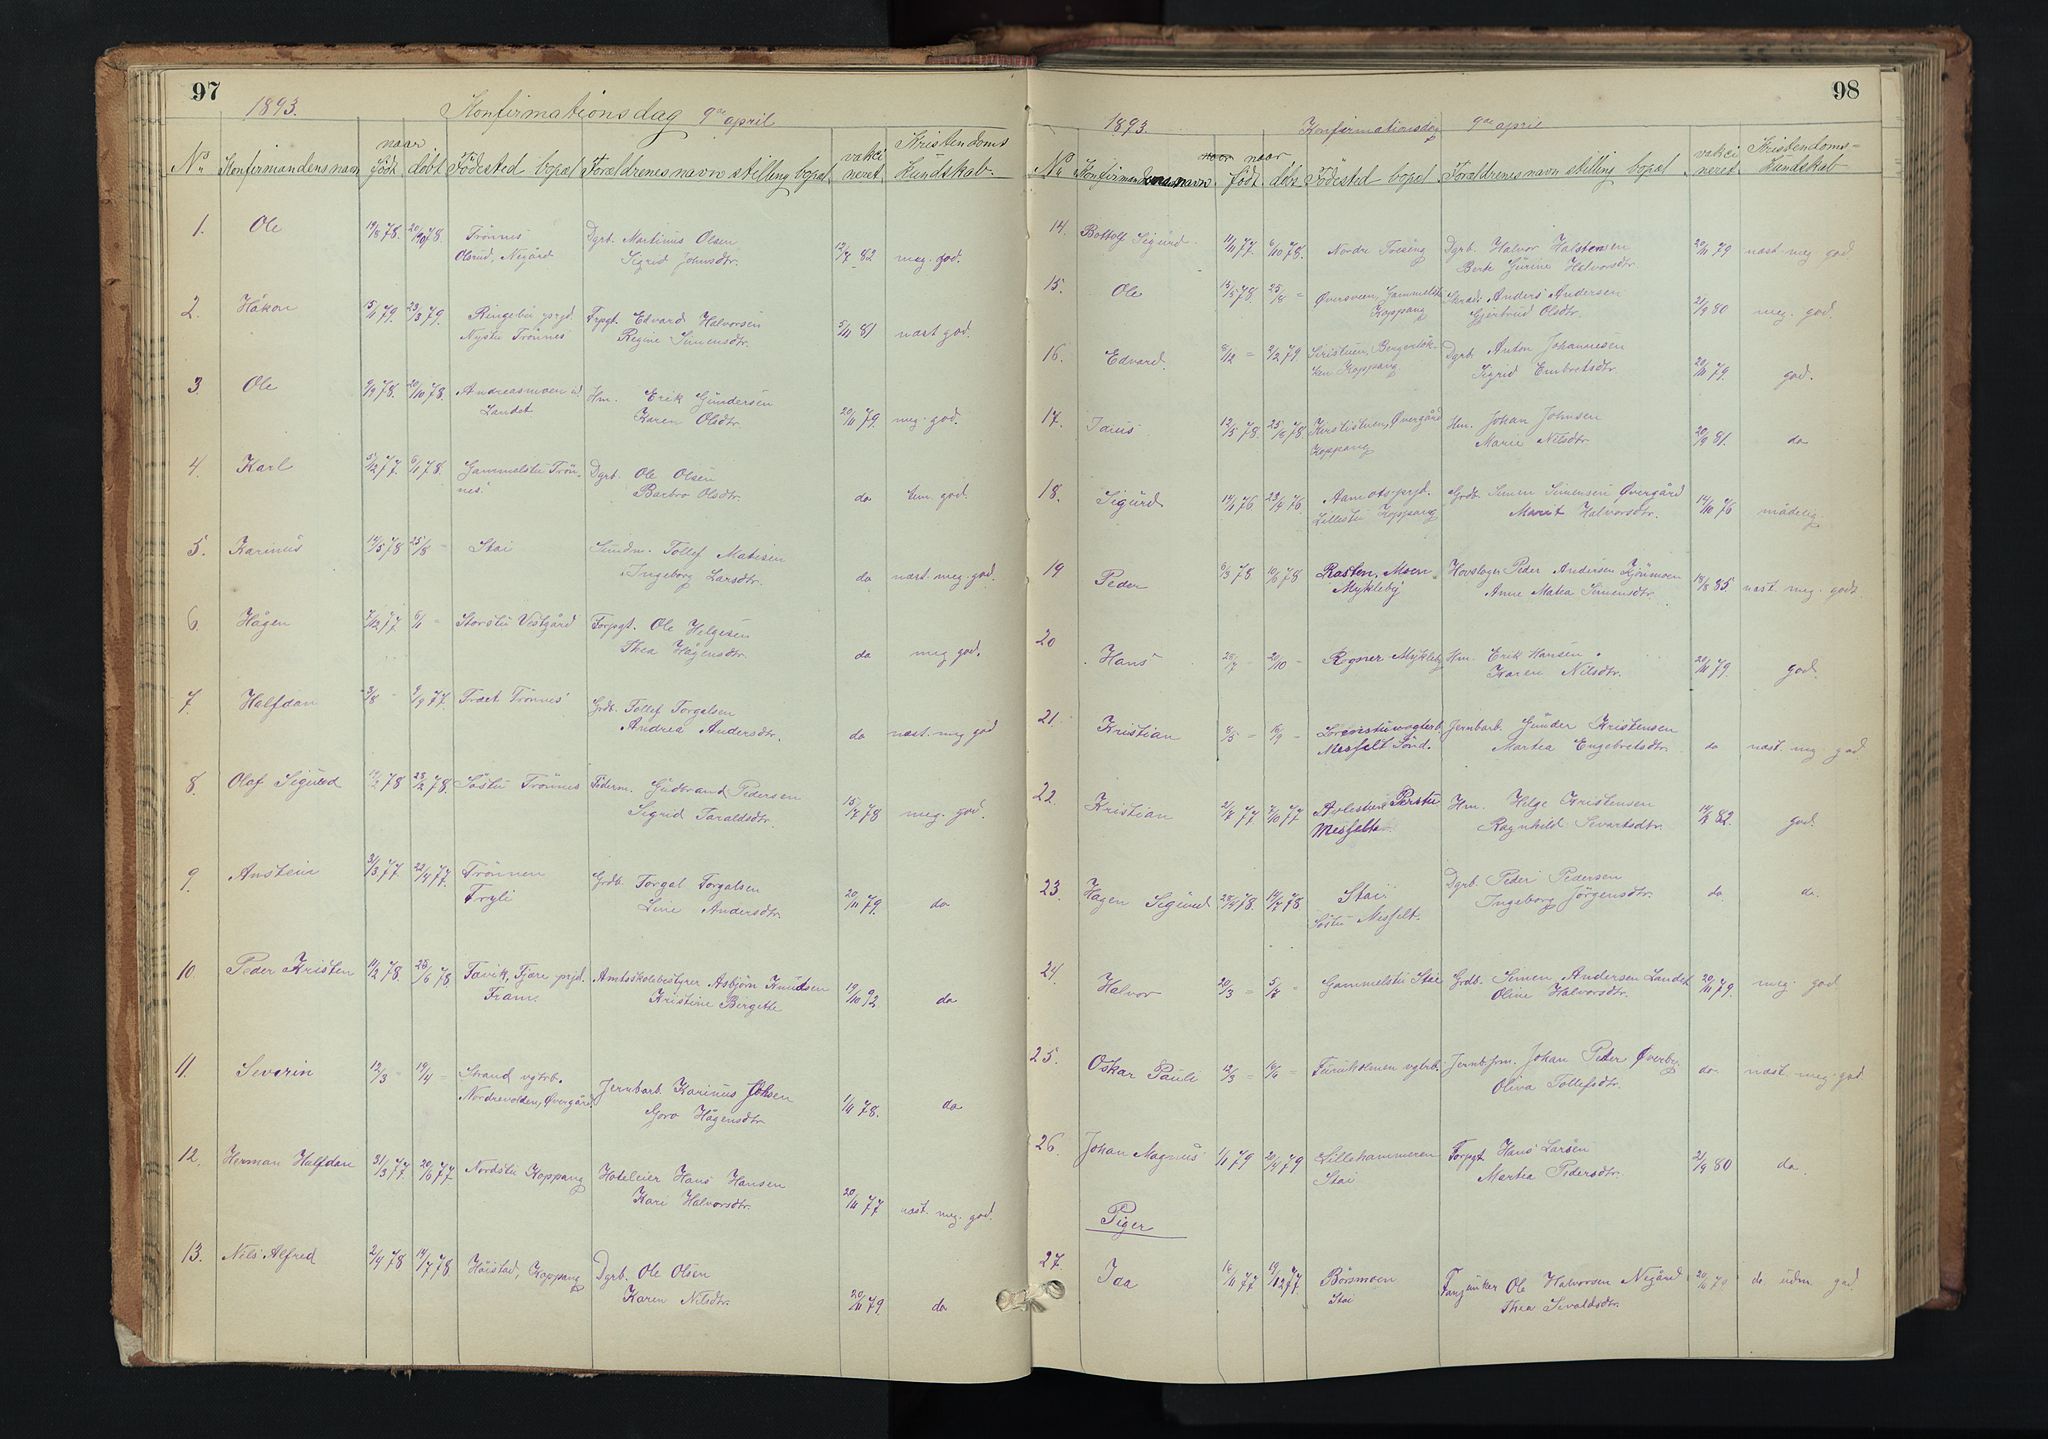 97
1893. Konfirmationsdag 9de april
naar
No Konfirmandens navn født døbt Fødested bopæl Forældrenes navn stilling bopæl vakcineret Kristendoms Kundskab
1. Ole 19/8 78. Trönnes Dgrb. Martinus Olsen
Olsrud, Negård Sigrid Johnsdtr. 12/7 82 meg. god.
2. Håkon 15/1 79. 23/3 79. Ringebu prgd Frpgt. Edvard Halvorsen
Nystu Trönnes Regine Simensdtr. 5/11 81 næst god.
3. Ole 9/9 78. 20/10 78. Andreasmoen Hm. Erik Gundersen
Landet Karen Olsdtr. 20/11 79. meg. god.
4. Karl 5/12 77. 6/1 78. Gammelstu Trön- Dgrb. Ole Olsen
nes. Barbro Olsdtr. do tem. god.
5. Karinus 14/5 78 25/8 - Stai Tollef Matisen
Ingeborg Larsdtr. do næst. meg. god.
6. Hågen 7/12 77 6/1 - Storstu Vestgård Forpgt. Ole Helgesen
Thea Hågensdtr. do meg god.
7. Halfdan 3/8 - 2/9 77. Træet Trönnes Grdb. Tollef Torgalsen
Andrea Andersdtr. do næst. meg god
8. Olaf Sigurd 78 78. Söstu Trönnes Federm. Gudbrand Pedersen
Sigrid Taraldsdtr. 15/7 78 meg. god.
9. Anstein 31/3 77 22/4 77. Trönnen Grdb. Torgal Torgalsen
Fryli Line Andersdtr. 20/11 79. do
10 Peder Kristen 11/2 78. 28/6 78 Favik, Fjære prjd. Amtsskolebestyrer Asbjörn Knudsen
Fram. Kristine Birgette 19/10 92 do
11. Severin 12/3 - 14/4 - Strand vgtrb. Jernbarb. Karinus Johsen
Nordrevolden, Övergård Goro Hågensdtr. 1/11 78. do
12. Herman Halfdan 31/3 77. 20/6 77 Nordstu Koppang Hoteleier Hans Hansen
Kari Halvorsdtr. 20/11 77 næst. meg. god.
13. Nils Alfred 2/4 78 14/7 78 Höistad, Koppang Dgrb. Ole Olsen
Karen Nilsdtr. 20/11 79 do
98
1893. Konfirmationsdag 9de april
naar naar
No Konfirmandens navn født døbt Fødested bopæl Forældrenes navn stilling bopæl vakcineret Kristendoms-Kundskab
14. Bottolf Sigurd. 11/11 77. 6/10 78. Nordre Dgrb. Halvor Halstensen
Berte Gurine Halvorsdtr. 20/11 79 næst meg god.
15. Ole 15/5 78. 25/8 = Øversveen, Gammelstu Anders Andersen
Koppang Gjertrud Olsdtr. 21/9 80 meg. god.
16. Edvard 8/12 = 2/2 79. Siristuen, Bergerlök- Dgrb. Anton Johannesen
ken Koppang. Sigrid Embretsdtr. 20/11 79. god.
17. 12/5 78. 25/8 78. Kirstistuen, Övergård Hm. Johan Johnsen
Koppang Marie Nilsdtr. 20/9 81. do
18. Sigurd 14/1 76. 23/4 76. Aamots prjd. Grdb. Simen Simensen Övergård
Lillestu Koppang Marit Halvorsdtr. 14/10 76 mådelig
19 Peder 6/3 78 10/6 78 Rasten, Moen Hovslager Peder Andersen Kjönmoen
Mykleby Anne Matea Simensdtr. 18/8 85. næst. meg. godt.
20 Hans - 20/10 - Rogner Mykleby Hm. Erik Hansen
Karen Nilsdtr. 20/11 79. god.
21. Kristian 8/5 = 16/9 - Lorenstu vogterb. Jernbarb. Gunder Kristensen
Mesfelt Sönd. Martea Engebretsdtr. do næst meg. god
22. Kristian 77 7/10 77 Perstu Hm. Helge Kristensen
Mesfelten. Ragnhild Sivartsdtr. 82. god.
23. Hagen Sigurd 78. 14/7 78. Stai Dgrb. Peder Pedersen
Söstu Nesfelt. Ingeborg Jörgensdtr. do do.
24. Halvor 20/3 = 5/7 = Gammelstu Stai Grdb. Simen Andersen Landet
Oline Halvorsdtr. 20/11 79. meg. god.
25. Oskar Pauli 12/3 = 16/6 = Furuholmen vgtrb. Jernb.frm. Johan Peder Øverby
Oliva Tollefsdtr. do. næst. meg. god
26. Johan Magnus 1/1 79 20/4 79 Lillehammeren Forpgt Hans Larsen
Stai Martea Pedersdtr. 21/9 80 do.
Piger
27. Ida 16/11 77 19/12 77. Börsmoen Fanjunker Ole Halvorsen Negård
Stai Thea Sivaldsdtr. do. udm. god